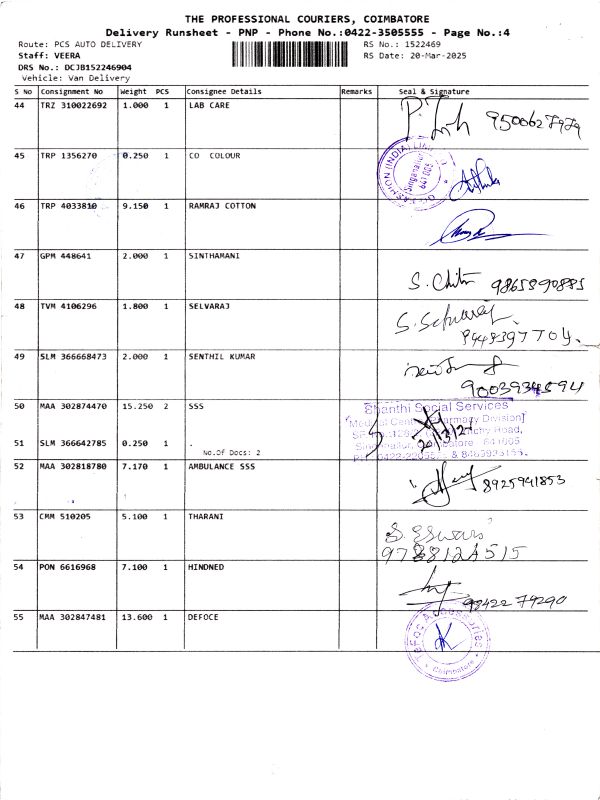 THE PROFESSIONAL COURIERS, COIMBATORE
Delivery Runsheet - PNP - Phone No.:0422-3505555 - Page No.:4
Route: PCS AUTO DELIVERY RS No.: 1522469
Staff: VEERA RS Date: 20-Mar-2025
DRS No.: DCJB152246904
Vehicle: Van Delivery
S No Consignment No Weight PCS Consignee Details Remarks Seal & Signature
44 TRZ 310022692 1.000 1 LAB CARE
9500627979
45 TRP 1356270 0.250 1 CO COLOUR
46 TRP 4033810 9.150 1 RAMRAJ COTTON
47 GPM 448641 2.000 1 SINTHAMANI
S. Chitra 9865890885
48 TVM 4106296 1.800 1 SELVARAJ
S. Selvaraj
49 SLM 366668473 2.000 1 SENTHIL KUMAR
50 MAA 302874470 15.250 2 SSS
Shanthi Social Services
51 SLM 366642785 0.250 1 .
No.Of Docs: 2
52 MAA 302818780 7.170 1 AMBULANCE SSS
8925941853
53 CMM 510205 5.100 1 THARANI
54 PON 6616968 7.100 1 HINDNED
98422 79290
55 MAA 302847481 13.600 1 DEFOCE
Coimbatore